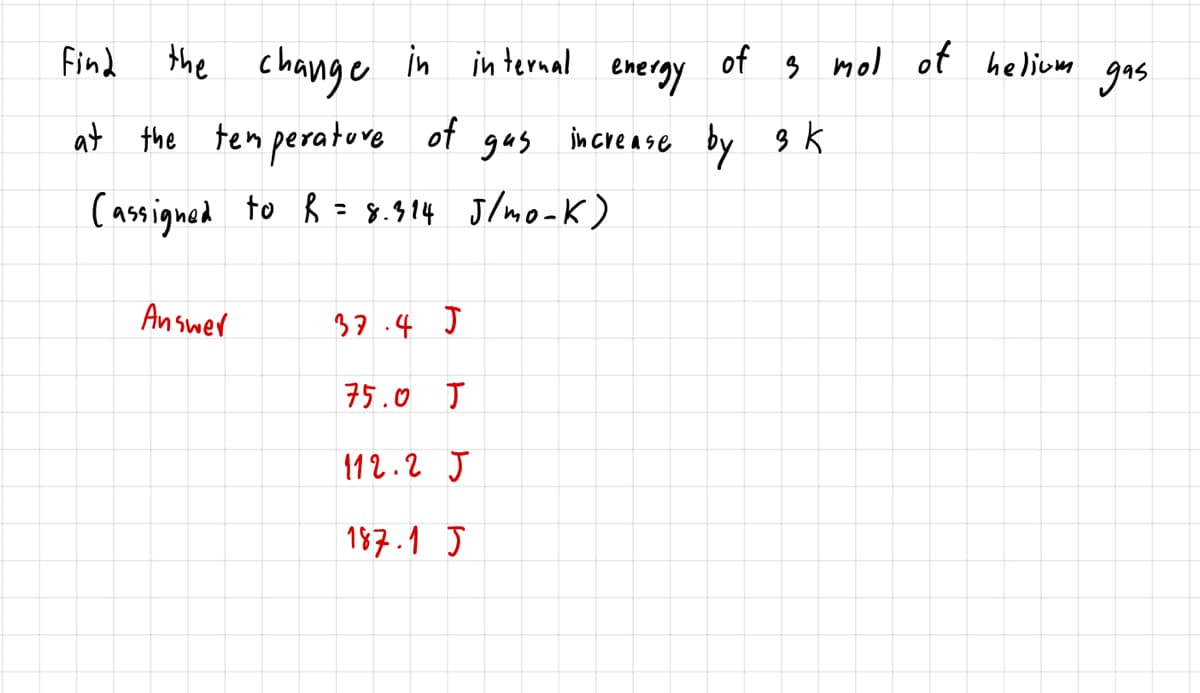 Find the change in internal energy of 3 mol of helium gas
at the temperature of gas increase by 3 K
(assigned to R = 8.314 J/mo-K)
Answer 37.4 J
75.0 J
112.2 J
187.1 J